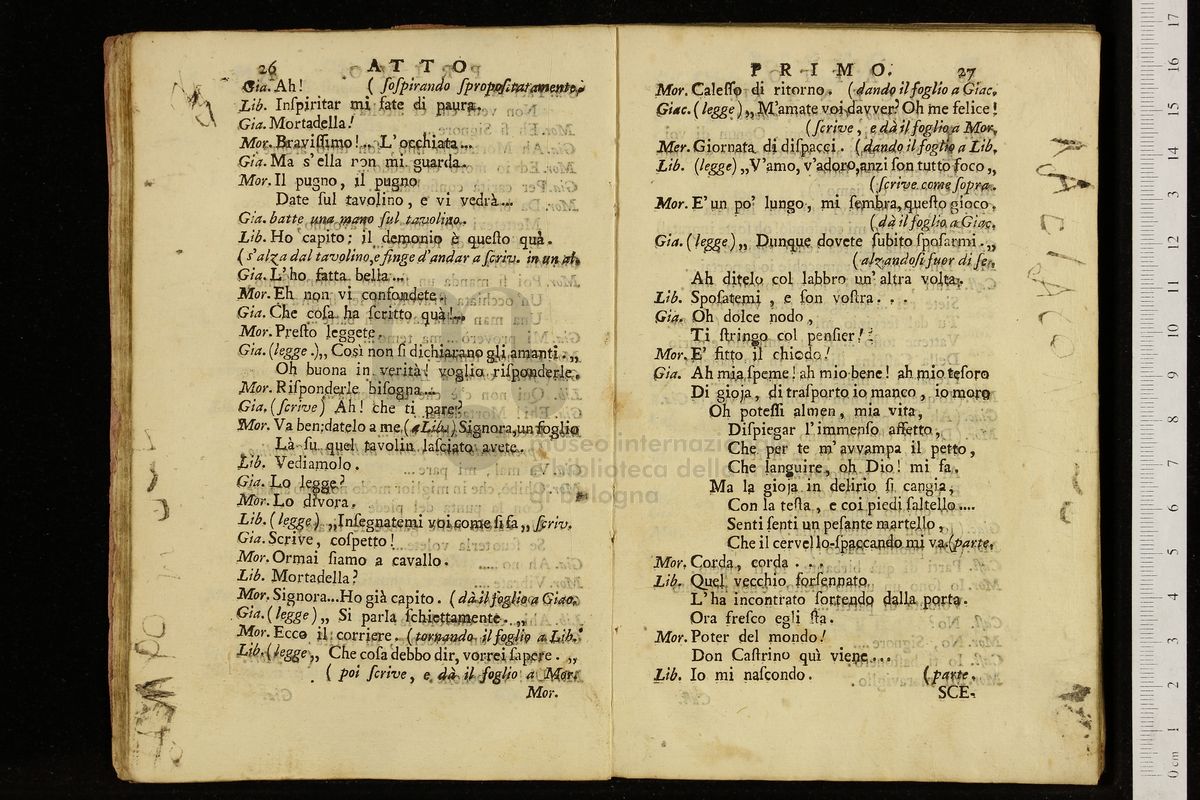 26 ATTO
Gia. Ah! ( ſoſpirando ſpropoſitatamente.
Lib. Inſpiritar mi fate di paura.
Gia. Mortadella!
Mor. Braviſſimo!... L'occhiata...
Gia. Ma s'ella non mi guarda.
Mor. Il pugno, il pugno
Date ſul tavolino, e vi vedrà...
Gia. batte una mano ſul tavolino.
Lib. Ho capito: il demonio è queſto quà.
( s'alza dal tavolino, e finge d'andar a ſcriv. in un al.
Gia. L'ho fatta bella...
Mor. Eh non vi confondete.
Gia. Che coſa ha ſcritto quà!...
Mor. Preſto leggete.
Gia. (legge.) „ Così non ſi dichiarano gli amanti. „
Oh buona in verità! voglio riſponderle.
Mor. Riſponderle biſogna...
Gia. (ſcrive) Ah! che ti pare?
Mor. Va ben; datelo a me, (a Lib.) Signora, un foglio
Là ſu quel tavolin laſciato avete.
Lib. Vediamolo.
Gia. Lo legge?
Mor. Lo divora.
Lib. (legge) „ Inſegnatemi voi come ſi fa „ ſcriv.
Gia. Scrive, coſpetto!
Mor. Ormai ſiamo a cavallo.
Lib. Mortadella?
Mor. Signora... Ho già capito. (dà il foglio a Giac.
Gia. (legge) „ Si parla ſchiettamente. „
Mor. Ecco il corriere. (tornando il foglio a Lib.
Lib. (legge „ Che coſa debbo dir, vorrei ſapere. „
( poi ſcrive, e dà il foglio a Mor.
Mor.
PRIMO. 27
Mor. Caleſſo di ritorno. (dando il foglio a Giac.
Giac. (legge) „ M'amate voi davver? Oh me felice!
(ſcrive, e dà il foglio a Mor.
Mer. Giornata di diſpacci. (dando il foglio a Lib.
Lib. (legge) „ V'amo, v'adoro, anzi ſon tutto foco „
(ſcrive come ſopra.
Mor. E' un po' lungo, mi ſembra, queſto gioco.
(dà il foglio a Giac.
Gia. (legge) „ Dunque dovete ſubito ſpoſarmi. „
(alzandoſi fuor di ſe.
Ah ditelo col labbro un'altra volta.
Lib. Spoſatemi, e ſon voſtra...
Gia. Oh dolce nodo,
Ti ſtringo col penſier!
Mor. E' fitto il chiodo!
Gia. Ah mia ſpeme! ah mio bene! ah mio teſoro
Di gioja, di traſporto io manco, io moro
Oh poteſſi almen, mia vita,
Diſpiegar l'immenſo affetto,
Che per te m'avvampa il petto,
Che languire, oh Dio! mi fa.
Ma la gioja in delirio ſi cangia,
Con la teſta, e coi piedi ſaltello....
Senti ſenti un peſante martello,
Che il cervello ſpaccando mi va. (parte.
Mor. Corda, corda...
Lib. Quel vecchio forſennato
L'ha incontrato ſortendo dalla porta.
Ora freſco egli ſta.
Mor. Poter del mondo!
Don Caſtrino quì viene...
Lib. Io mi naſcondo. (parte.
SCE-
museo internazionale
biblioteca della
di bologna